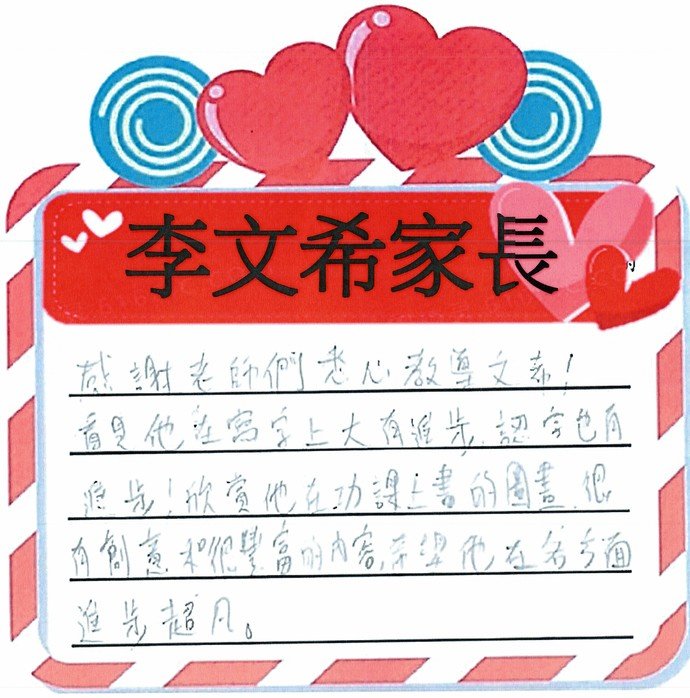 李文希家長
感謝老師們悉心教導文希！
看見他在寫字上大有進步，認字也有
進步！欣賞他在功課上書的圖畫，很
有創意和很豐富的內容，希望他在各方面
進步超凡。